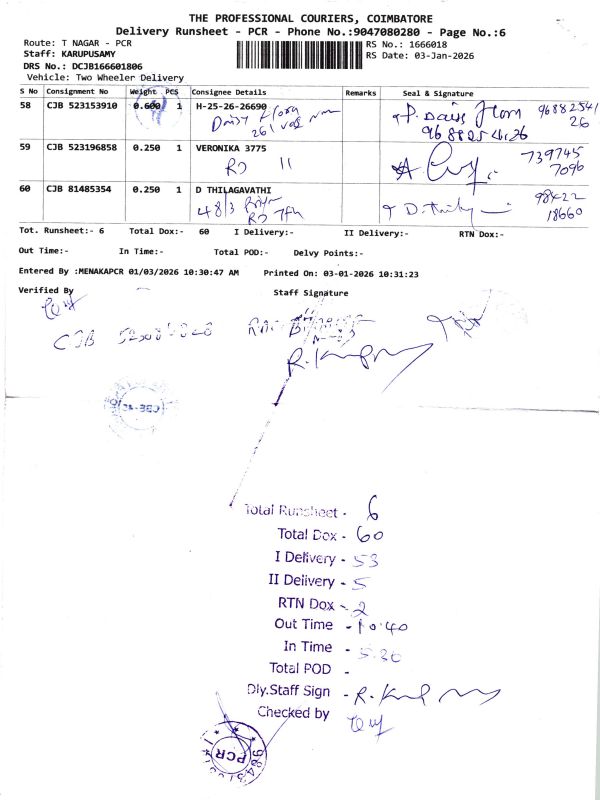 THE PROFESSIONAL COURIERS, COIMBATORE
Delivery Runsheet - PCR - Phone No.:9047080280 - Page No.:6
Route: T NAGAR - PCR
RS No.: 1666018
Staff: KARUPUSAMY
RS Date: 03-Jan-2026
DRS No.: DCJB166601806
Vehicle: Two Wheeler Delivery
S No Consignment No Weight PCS Consignee Details Remarks Seal & Signature
58 CJB 523153910 0.600 1 H-25-26-26690
Daisy Flora
59 CJB 523196858 0.250 1 VERONIKA 3775
RD 11
739745
7096
60 CJB 81485354 0.250 1 D THILAGAVATHI
48/3
98422
18660
Tot. Runsheet:- 6 Total Dox:- 60 I Delivery:- II Delivery:- RTN Dox:-
Out Time:- In Time:- Total POD:- Delvy Points:-
Entered By :MENAKAPCR 01/03/2026 10:30:47 AM Printed On: 03-01-2026 10:31:23
Verified By Staff Signature
CJB
Total Runsheet - 6
Total Dox - 60
I Delivery - 53
II Delivery - 5
RTN Dox - 2
Out Time - 10.40
In Time - 5.30
Total POD -
Dly.Staff Sign -
Checked by
PCR